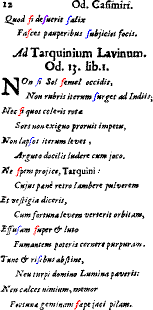 12 Od. Casimiri.
Quod si deſuerit ſalix
Faſces pauperibus ſubjicias focis.
Ad Tarquinium Lavinum.
Od. 13. lib. 1.
NOn ſi Sol ſemel occidit,
Non rubris iterum ſurget ab Indiis;
Nec ſi quos celeris rotæ
Sors non exiguo proruit impetu,
Non lapſos iterum levet,
Arguto docilis ludere cum joco.
Ne ſpem projice, Tarquini:
Cujus panè retro lambere pulverem
Et veſtigia diceris,
Cum fortuna levem verterit orbitam,
Effuſum ſuper & luto
Fumantem poteris cernere purpuram.
Tunc & riſibus abſtine,
Neu turpi domino Lumina paveris:
Neu calces nimium, memor
Fortunæ geminam ſæpe jaci pilam.